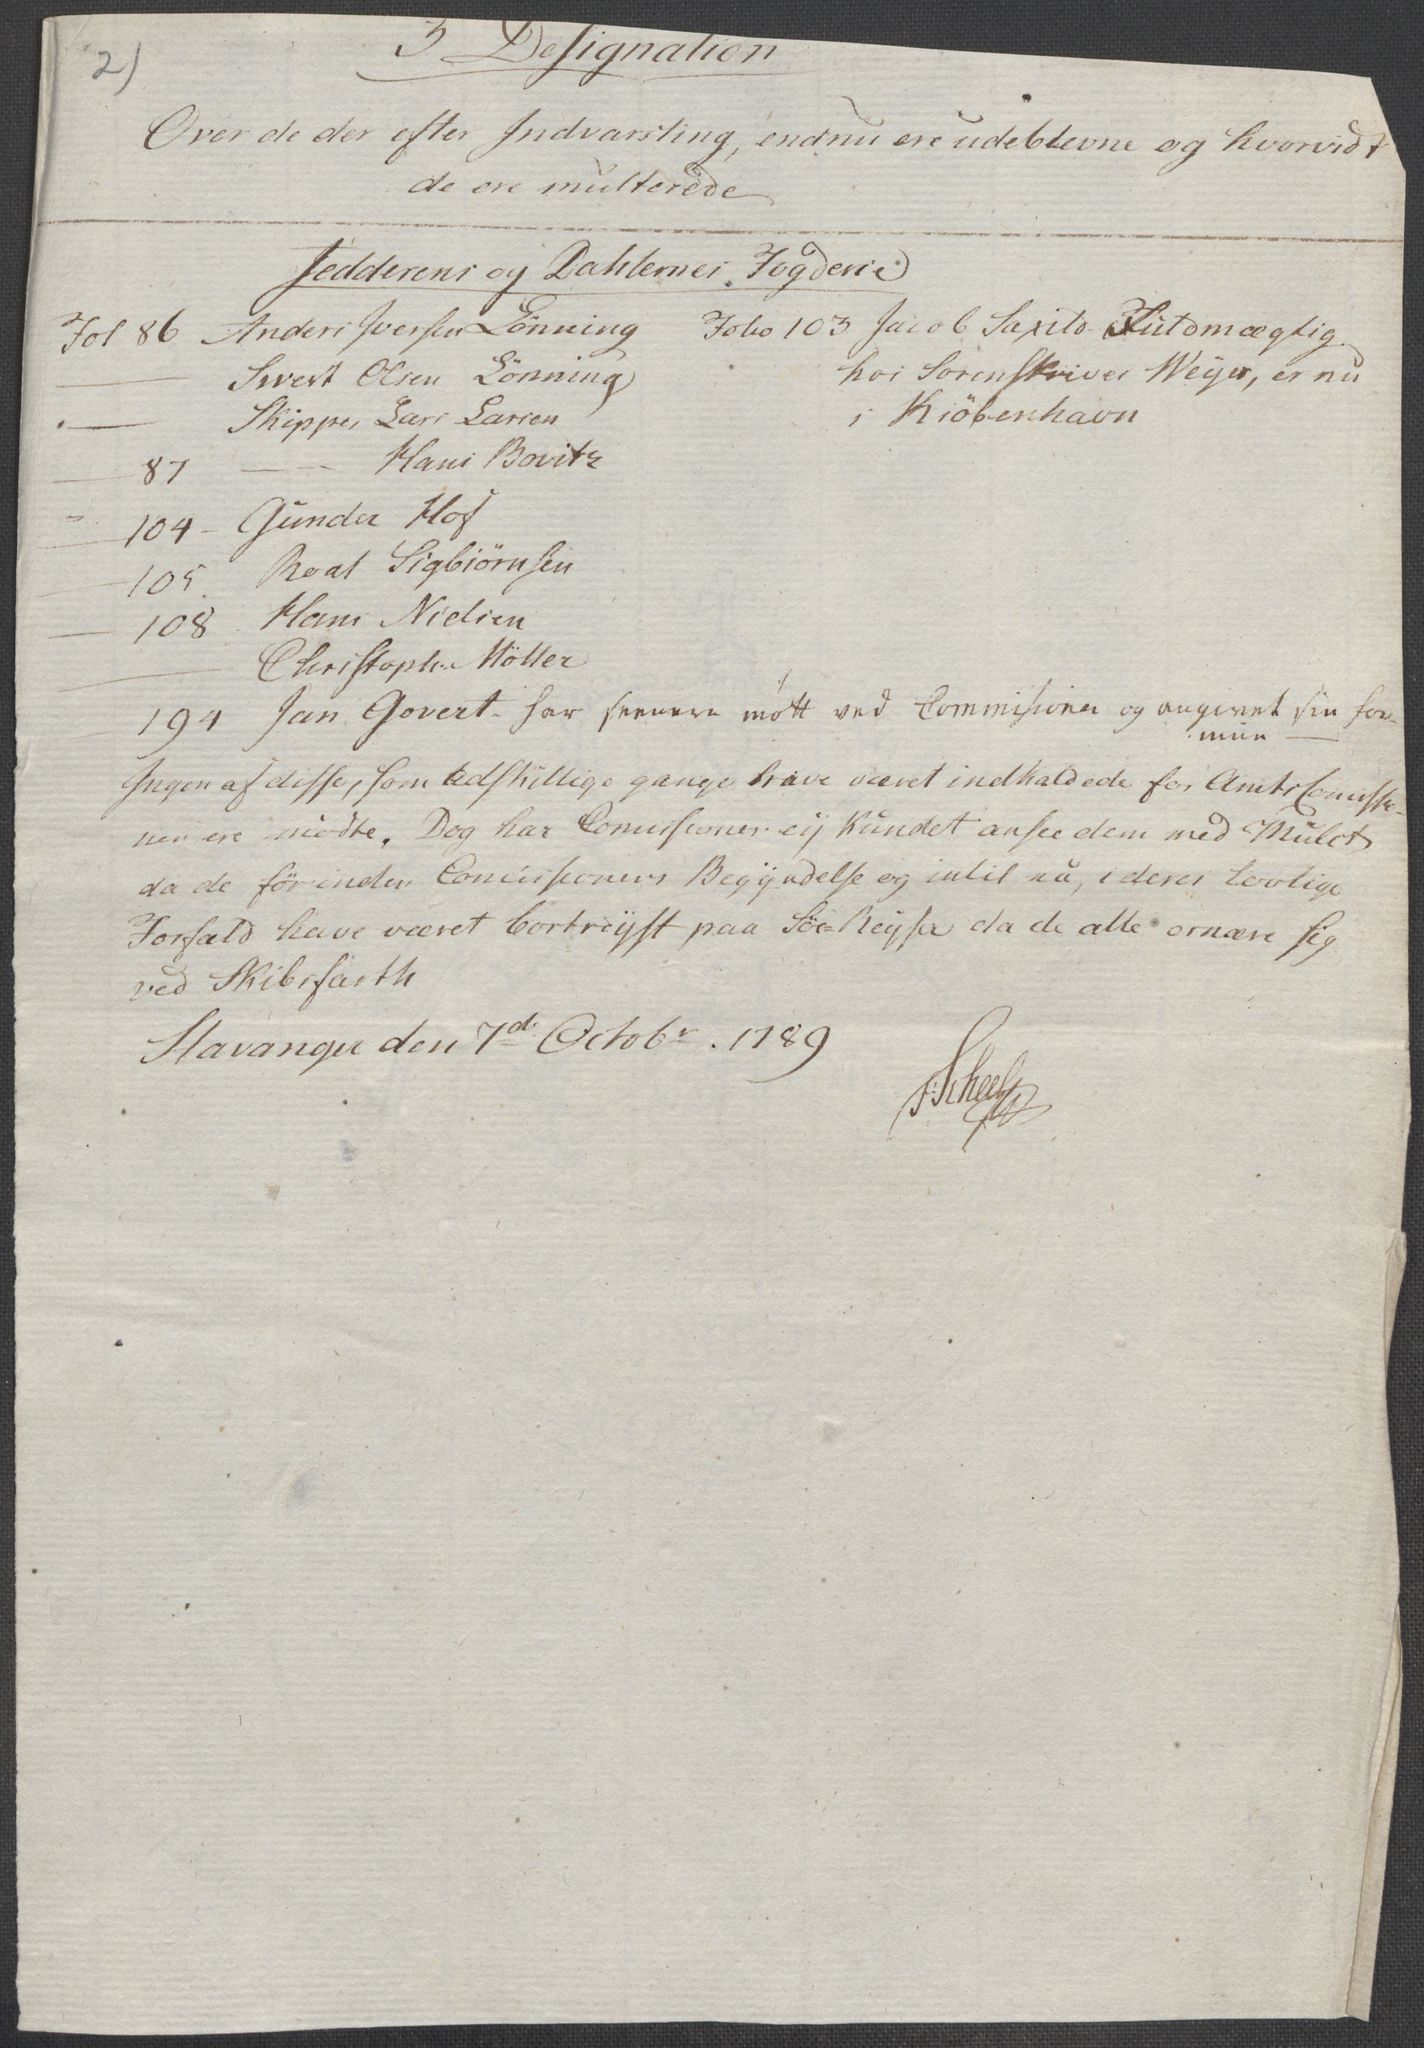 2)
3 Designation
Over de der efter Indvarsling, endnu ere udeblevne og hvorvidt
de ere multerede
Jedderens og Dahlernes Fogderie
Fol 86 Anders Iversen Lönning
— Sivert Olsen Lönning
— Skipper Lars Larsen
— 87 — Hans Bovitz
— 104 - Gunder Hof
— 105. Roal Sigbiörnsen
— 108 Hans Nielsen
— Christoph. Möller
194 Jan Govert. har seenere mött ved Commissionen og angivet sin for-
mue —
Folio 103 Jacob Saxild Fuldmægtig
hos Sorenskriver Weyer, er nu
i Kiöbenhavn
Ingen af disse, som adskillige gange have været indkaldede for Amts Comissio-
nen ere mödte. Dog har Comissionen eij kundet ansee dem med Mulct
da de förinden Comissionens Begÿndelse og indtil nu, i deres lovlige
Forfald have været bortreÿst paa Söe-Reÿse da de alle ernære sig
ved Skibsfarth
Stavanger den 7de Octobr. 1789
Scheel